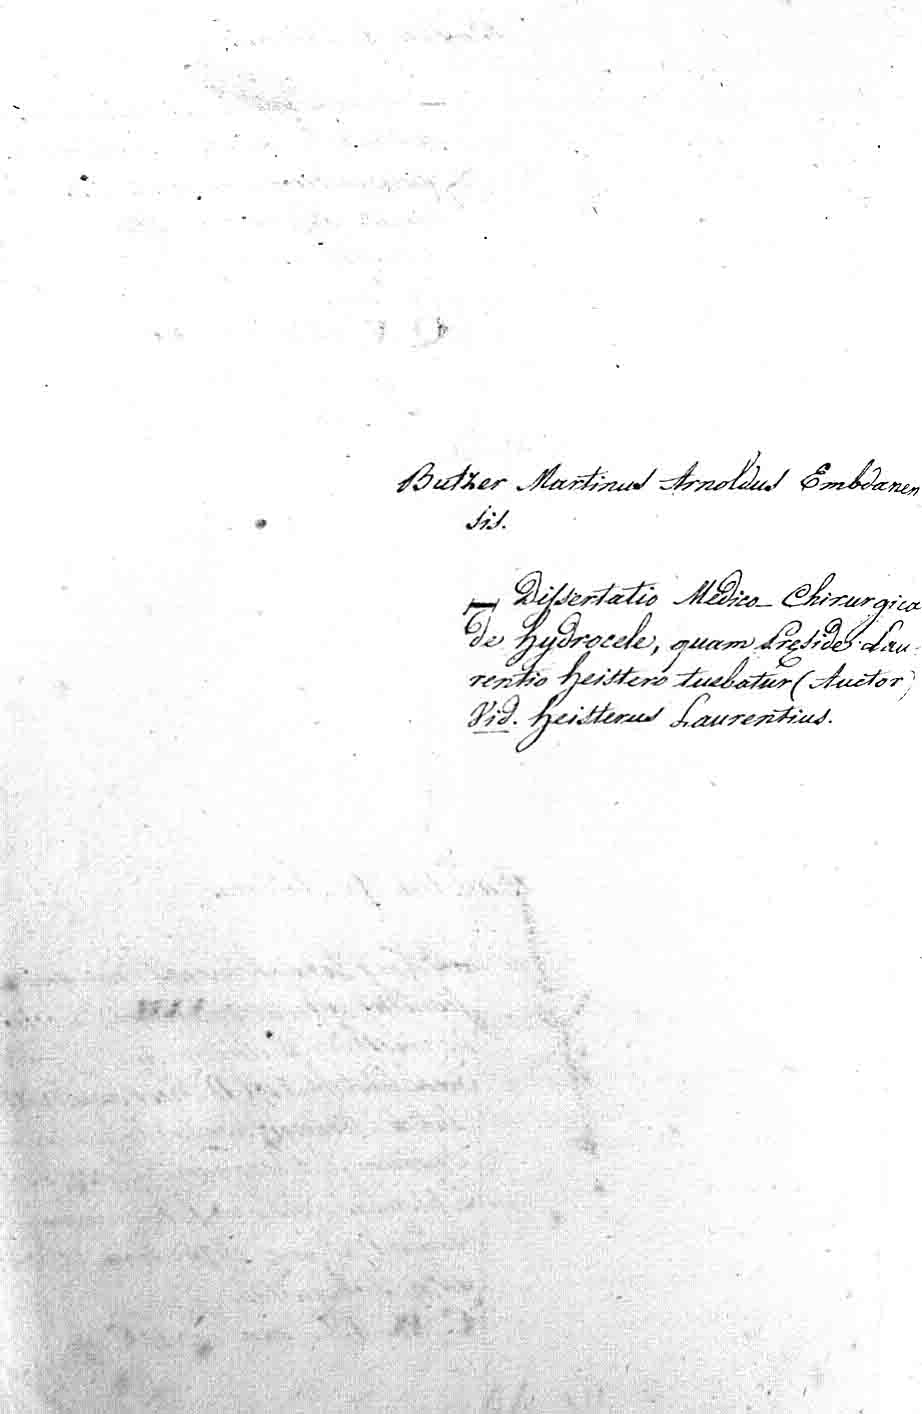 Butzer Martinus Arnoldus Embdanen
sis.
Dissertatio Medico-Chirurgica
de hydrocele, quam Præside Lau-
rentio heistero tuebatur (Auctor)
Vid. heisterus Laurentius.